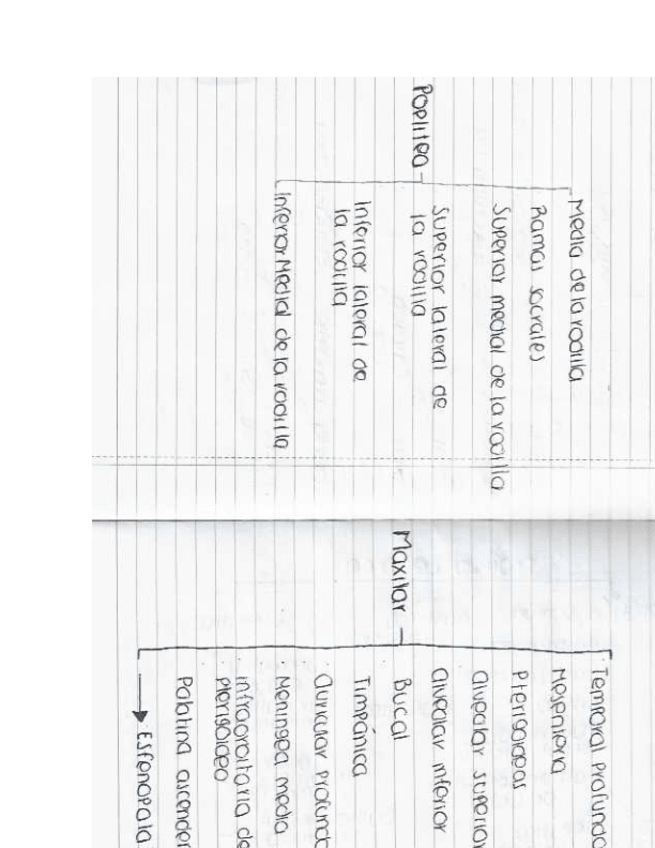 Poplitea
Media de la rodilla
Ramas socrales
Superior medial de la rodilla
Superior lateral de
la rodilla
Inferior lateral de
la rodilla
Inferior Medial de la rodilla
Maxilar
Temporal Profunda
Meseniena
Pterigoideas
alveolar superior
alveolar inferior
Bucal
Timpánica
auricular profund
Meningea media
infraorbitaria de
pterigoideo
Palatina ascenden
Esfenopala